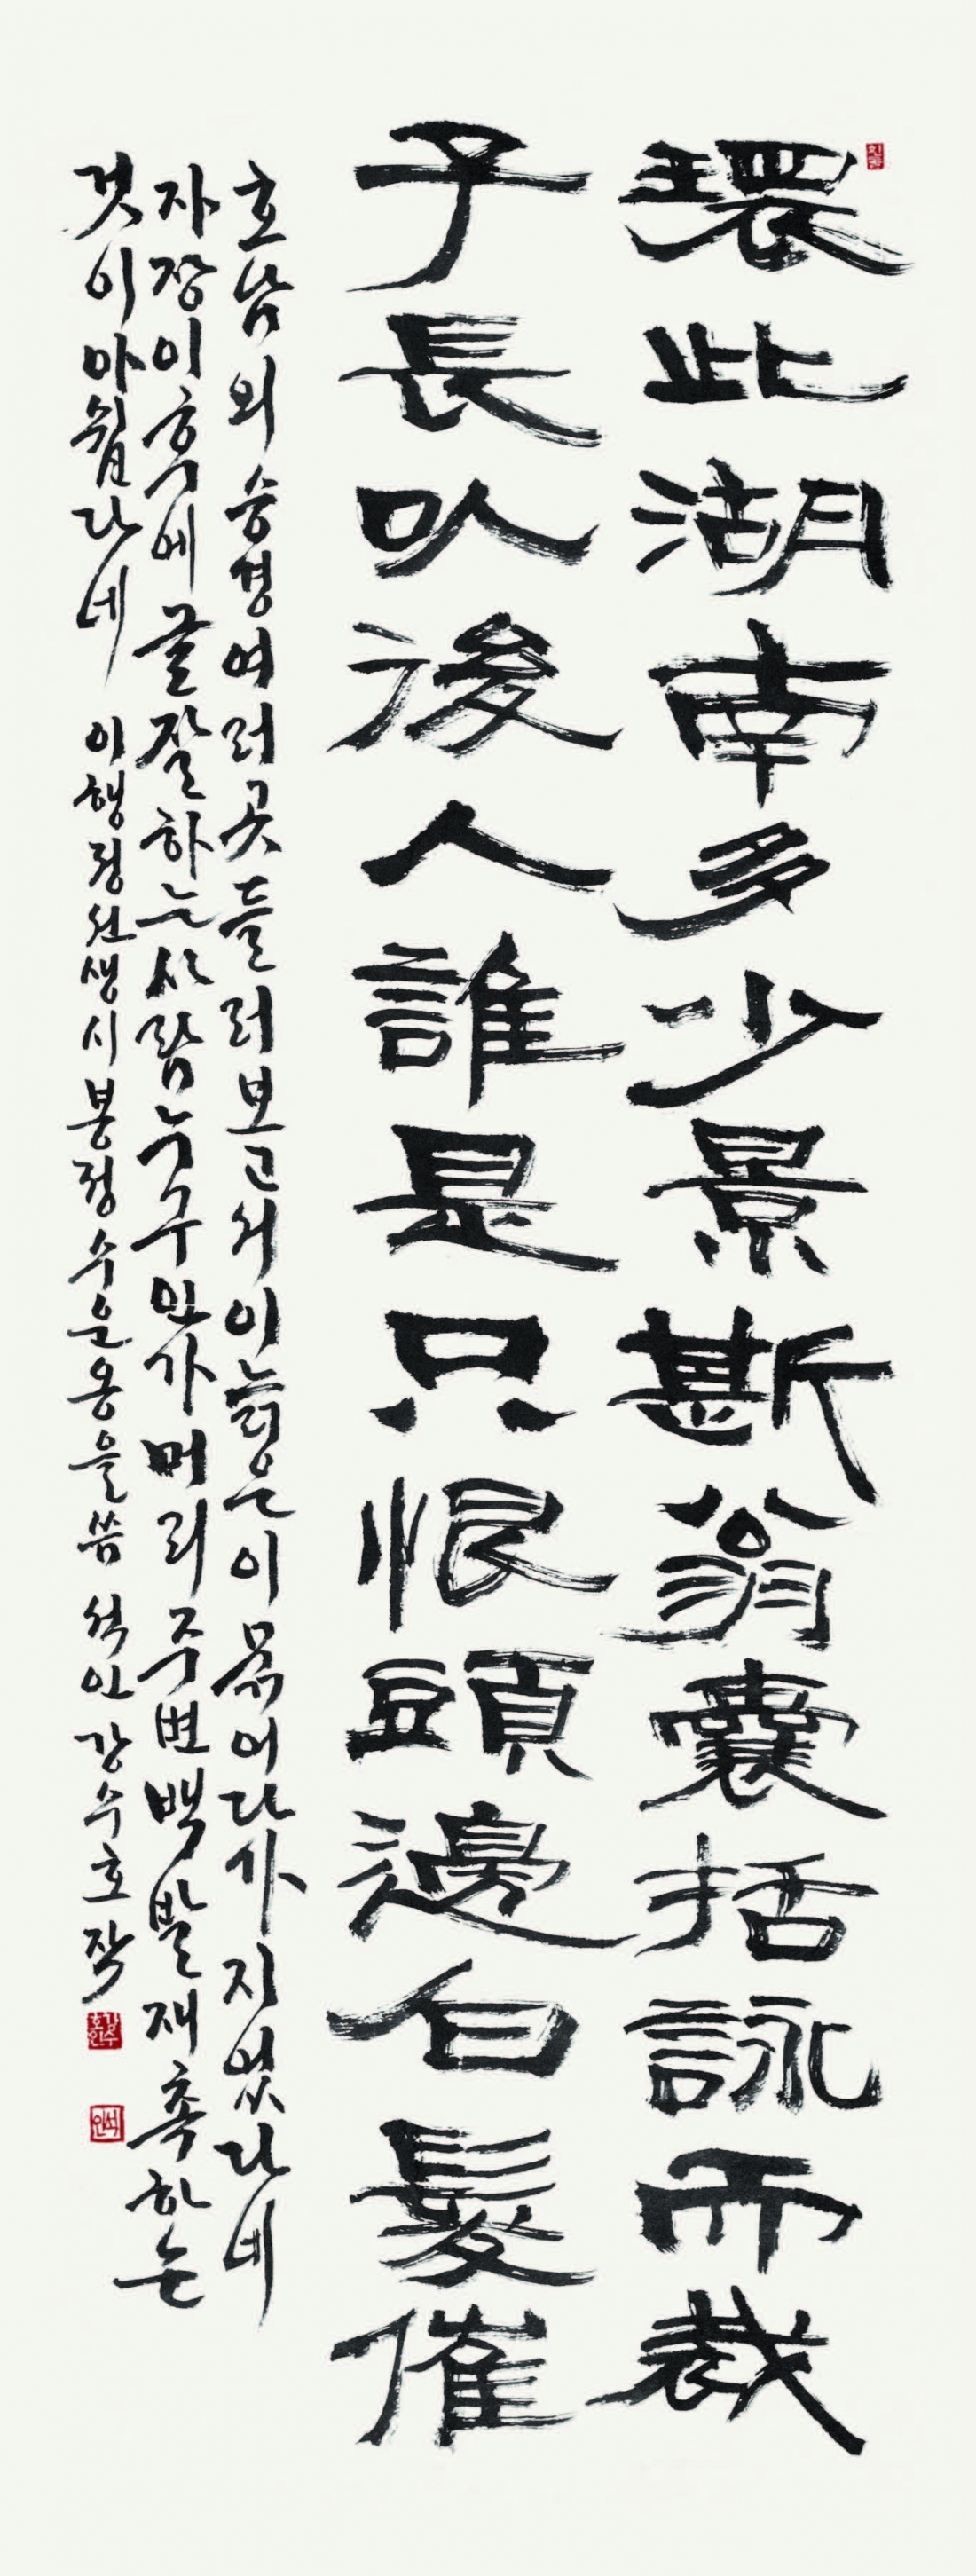 環此湖南多少景斯翁囊括詠而裁
子長以後人誰是只恨頭邊白髮催
호남의승경여러곳들러보고서이늙은이묶어다가지었다네
자장이후에글잘하는사람누구인가머리주변백발재촉하는
것이아쉽다네 이행정선생시봉정수운옹을씀 석인강수호작